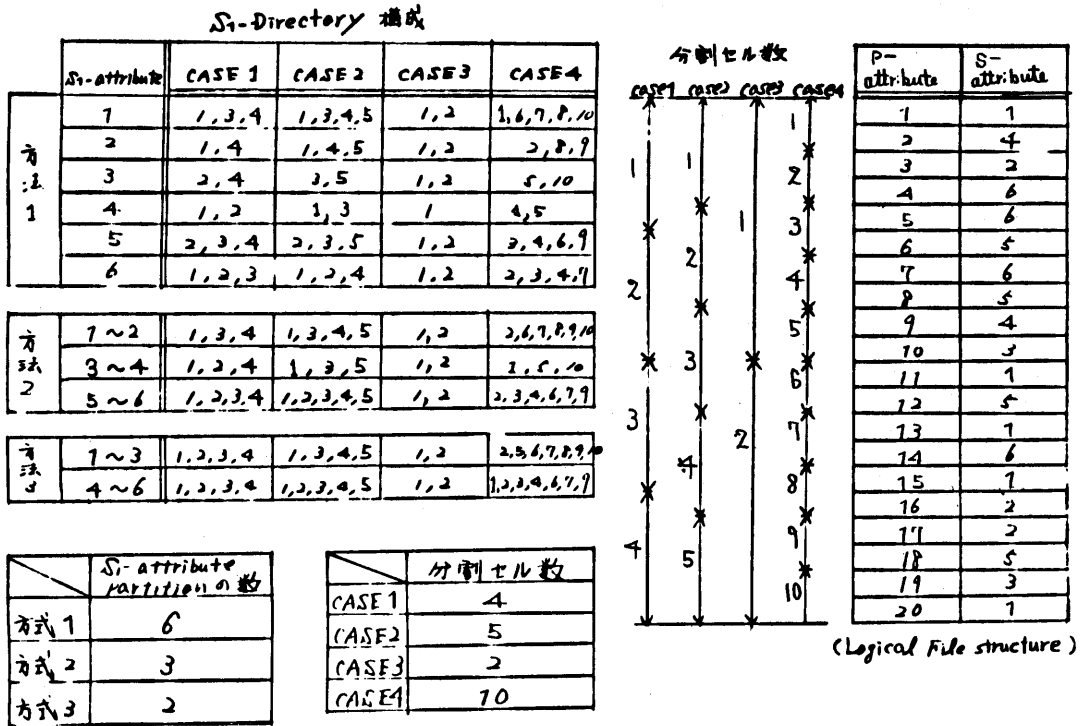 S1-Directory 構成
S1-attribute CASE 1 CASE 2 CASE 3 CASE 4
方法1
1 1,3,4 1,3,4,5 1,2 1,6,7,8,10
2 1,4 1,4,5 1,2 2,8,9
3 2,4 3,5 1,2 5,10
4 1,2 1,3 1 1,5
5 2,3,4 2,3,5 1,2 3,4,6,9
6 1,2,3 1,2,4 1,2 2,3,4,7
方法2
1~2 1,3,4 1,3,4,5 1,2 2,6,7,8,9,10
3~4 1,2,4 1,3,5 1,2 1,5,10
5~6 1,2,3,4 1,2,3,4,5 1,2 2,3,4,6,7,9
方法3
1~3 1,2,3,4 1,3,4,5 1,2 2,5,6,7,8,9,10
4~6 1,2,3,4 1,2,3,4,5 1,2 1,2,3,4,6,7,9
S1-attribute
partitionの数
方式1 6
方式2 3
方式3 2
分割セル数
CASE1 4
CASE2 5
CASE3 2
CASE4 10
分割セル数
case1 case2 case3 case4
1 2 3 4
1 2 3 4 5
1 2
1 2 3 4 5 6 7 8 9 10
P-attribute S-attribute
1 1
2 4
3 2
4 6
5 6
6 5
7 6
8 5
9 4
10 3
11 1
12 5
13 1
14 6
15 1
16 2
17 2
18 5
19 3
20 1
(Logical File structure)